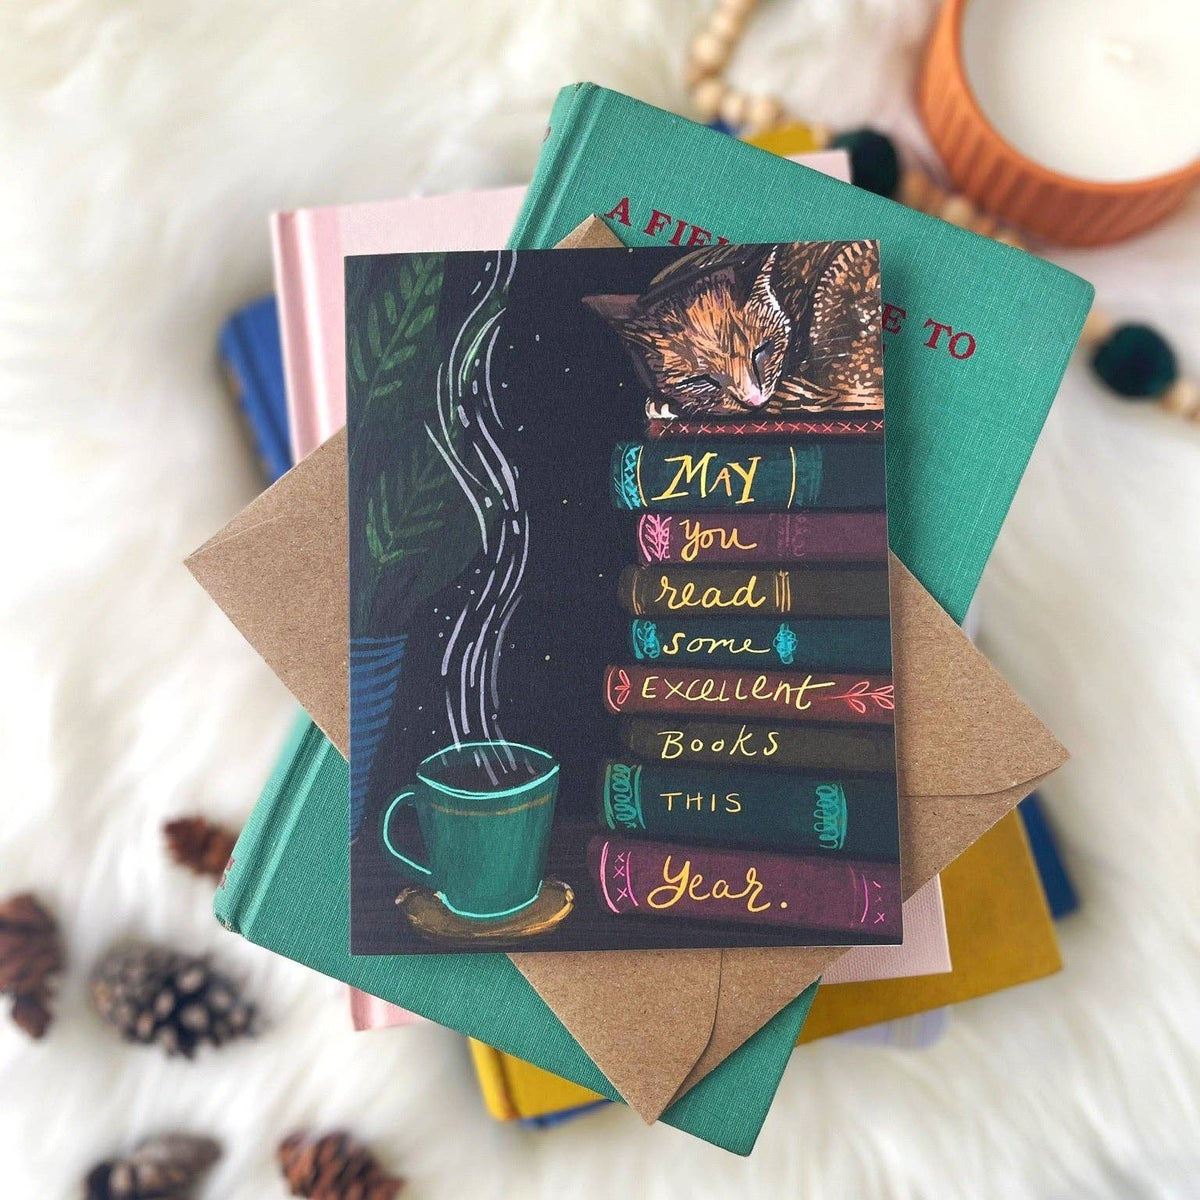 A
E TO
MAY
you
read
some
Excellent
Books
THIS
Year.